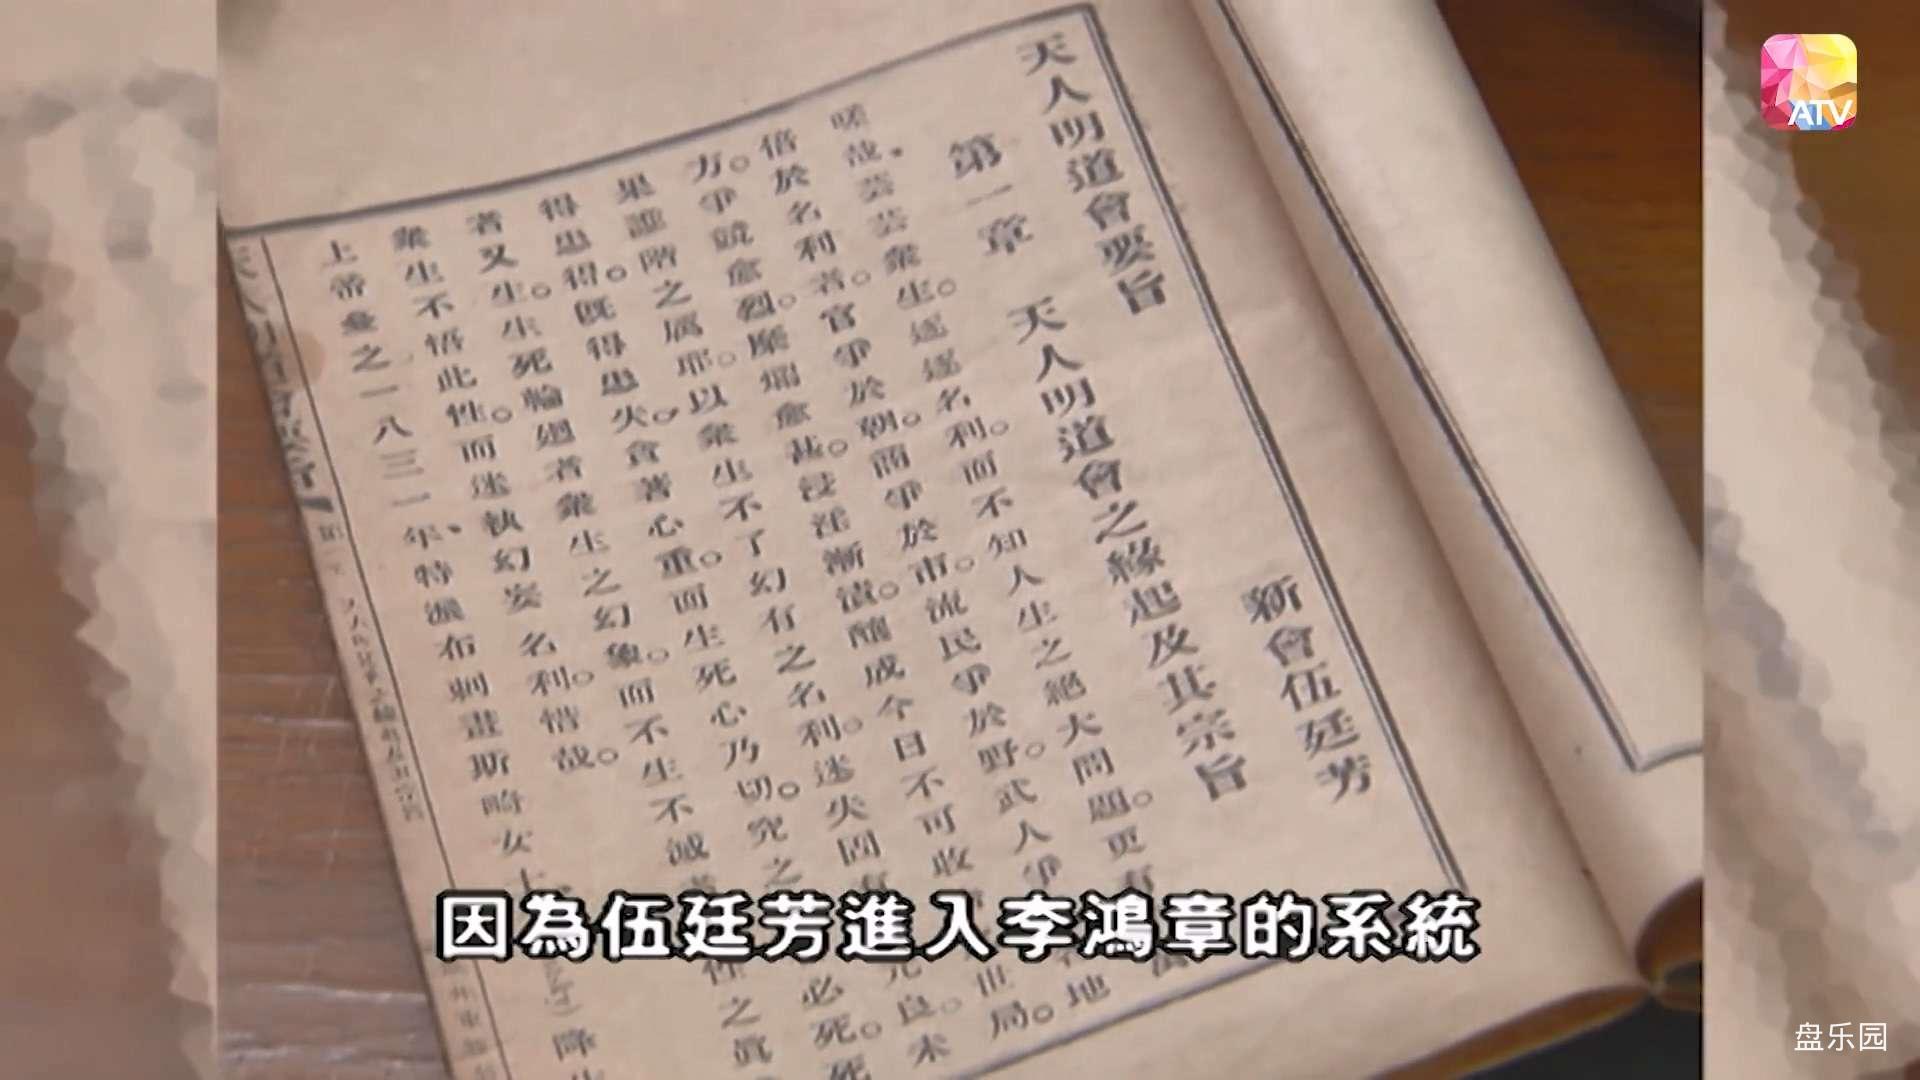 ATV
天人明道會要旨
新會伍廷芳
第一章 天人明道會之緣起及其宗旨
嗟哉。芸芸衆生。逐逐名利。而不知人生之絕大問題。更有
倍於名利者。官爭於朝。商爭於市。流民爭於野。武人爭 地
方。爭競愈烈。糜爛愈甚。浸淫漸漬。釀成今日不可收 世局。
果誰階之厲耶。以衆生不了幻有之名利。迷失固有 元良。未
得患得。既得患失。貪著心重。而生死心乃切。究之 必死。死
者又生。生死輪廻者衆生之幻象。而不生不滅 性之眞
衆生不悟此性。而迷執幻妄名利。惜哉。
上帝
之一八三一年、特派布剌畫斯 女士 降生
因為伍廷芳進入李鴻章的系統
盘乐园